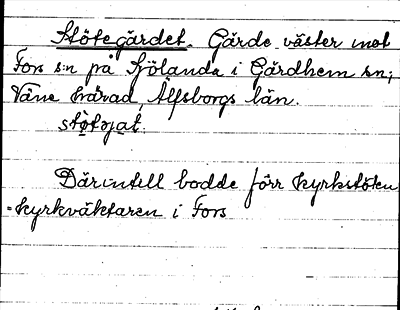 Stötegärdet. Gärde väster mot
Fors s:n på Sjölanda i Gärdhem sn;
Väne härad, Älfsborgs län.
stötojat.
Därintill bodde förr kyrkstöten
= kyrkväktaren i Fors